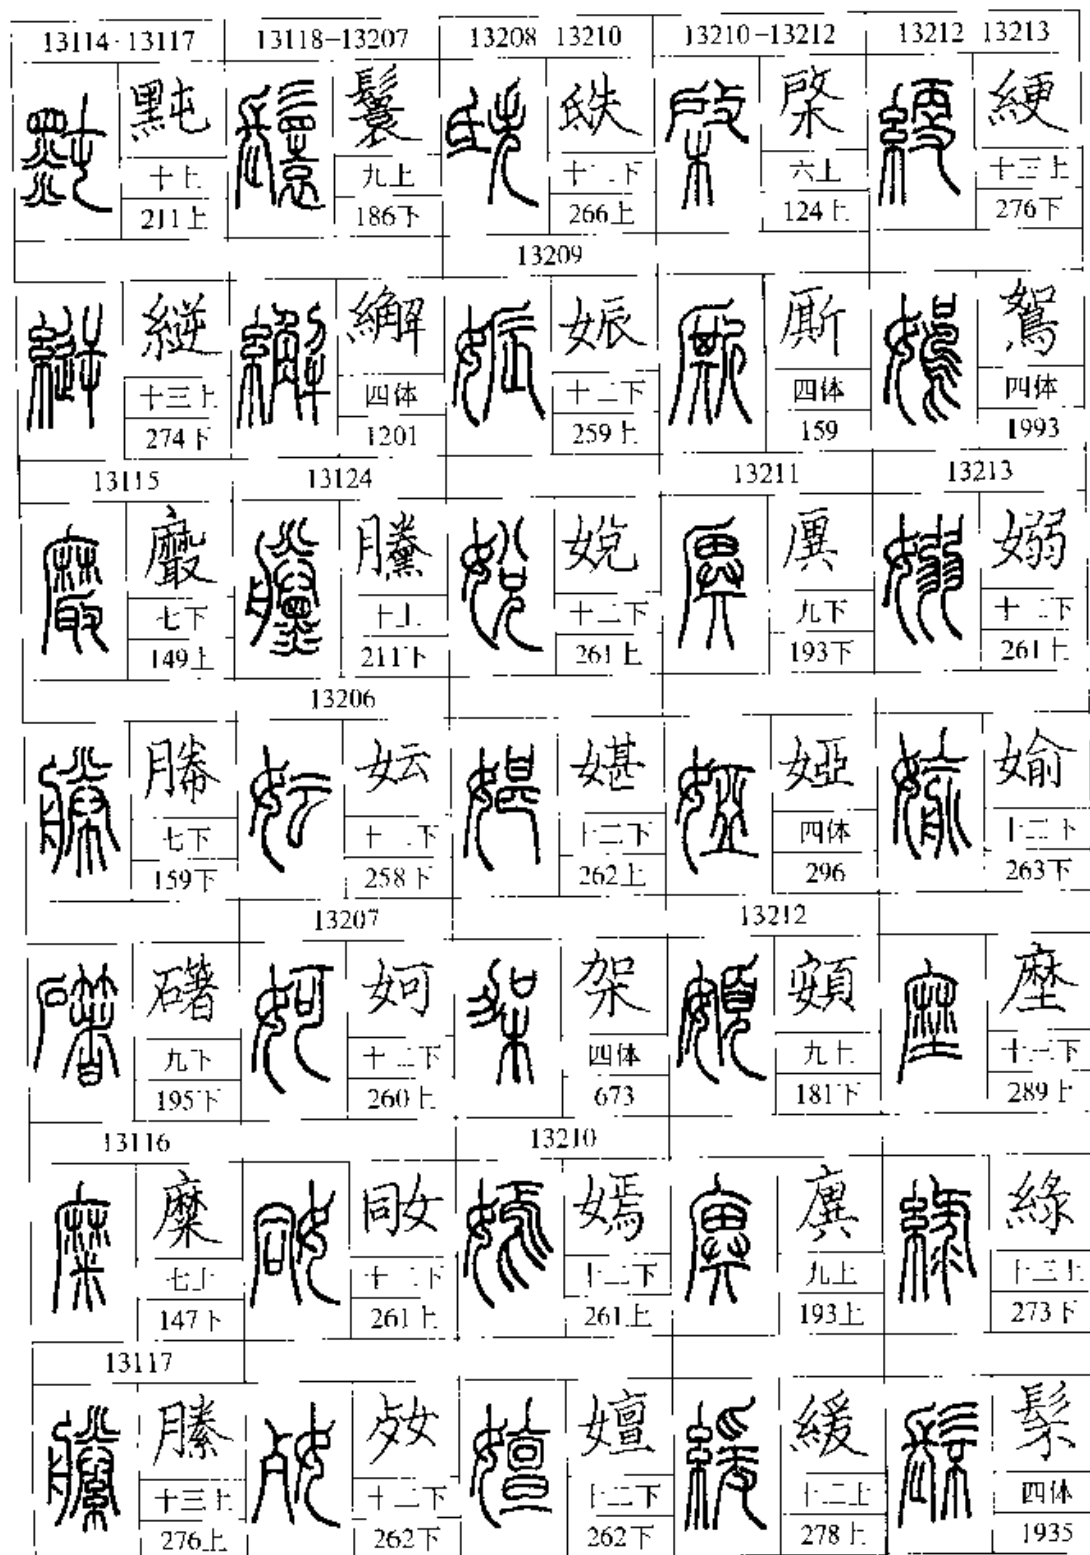 13114-13117
黗
十上
211上
縌
十三上
274下
13115
黀
七下
149上
幐
七下
159下
九下
195下
13116
糜
七上
147下
13117
縢
十三上
276上
13118-13207
鬟
九上
186下
繲
四体
1201
13124
黱
十上
211下
13206
妘
十二下
258下
13207
妸
十二下
260上
十二下
261上
十二下
262下
13208 13210
十二下
266上
13209
娠
十二下
259上
娧
十二下
261上
媅
十二下
262上
架
四体
673
13210
嫣
十二下
261上
嬗
十二下
262下
13210-13212
棨
六上
124上
厮
四体
159
13211
九下
193下
婭
四体
296
13212
頞
九上
181下
廙
九上
193上
緩
十二上
278上
13212 13213
綆
十三上
276下
鴽
四体
1993
13213
嫋
十二下
261上
媮
十二下
263下
塺
十三下
289上
綠
十三上
273下
四体
1935